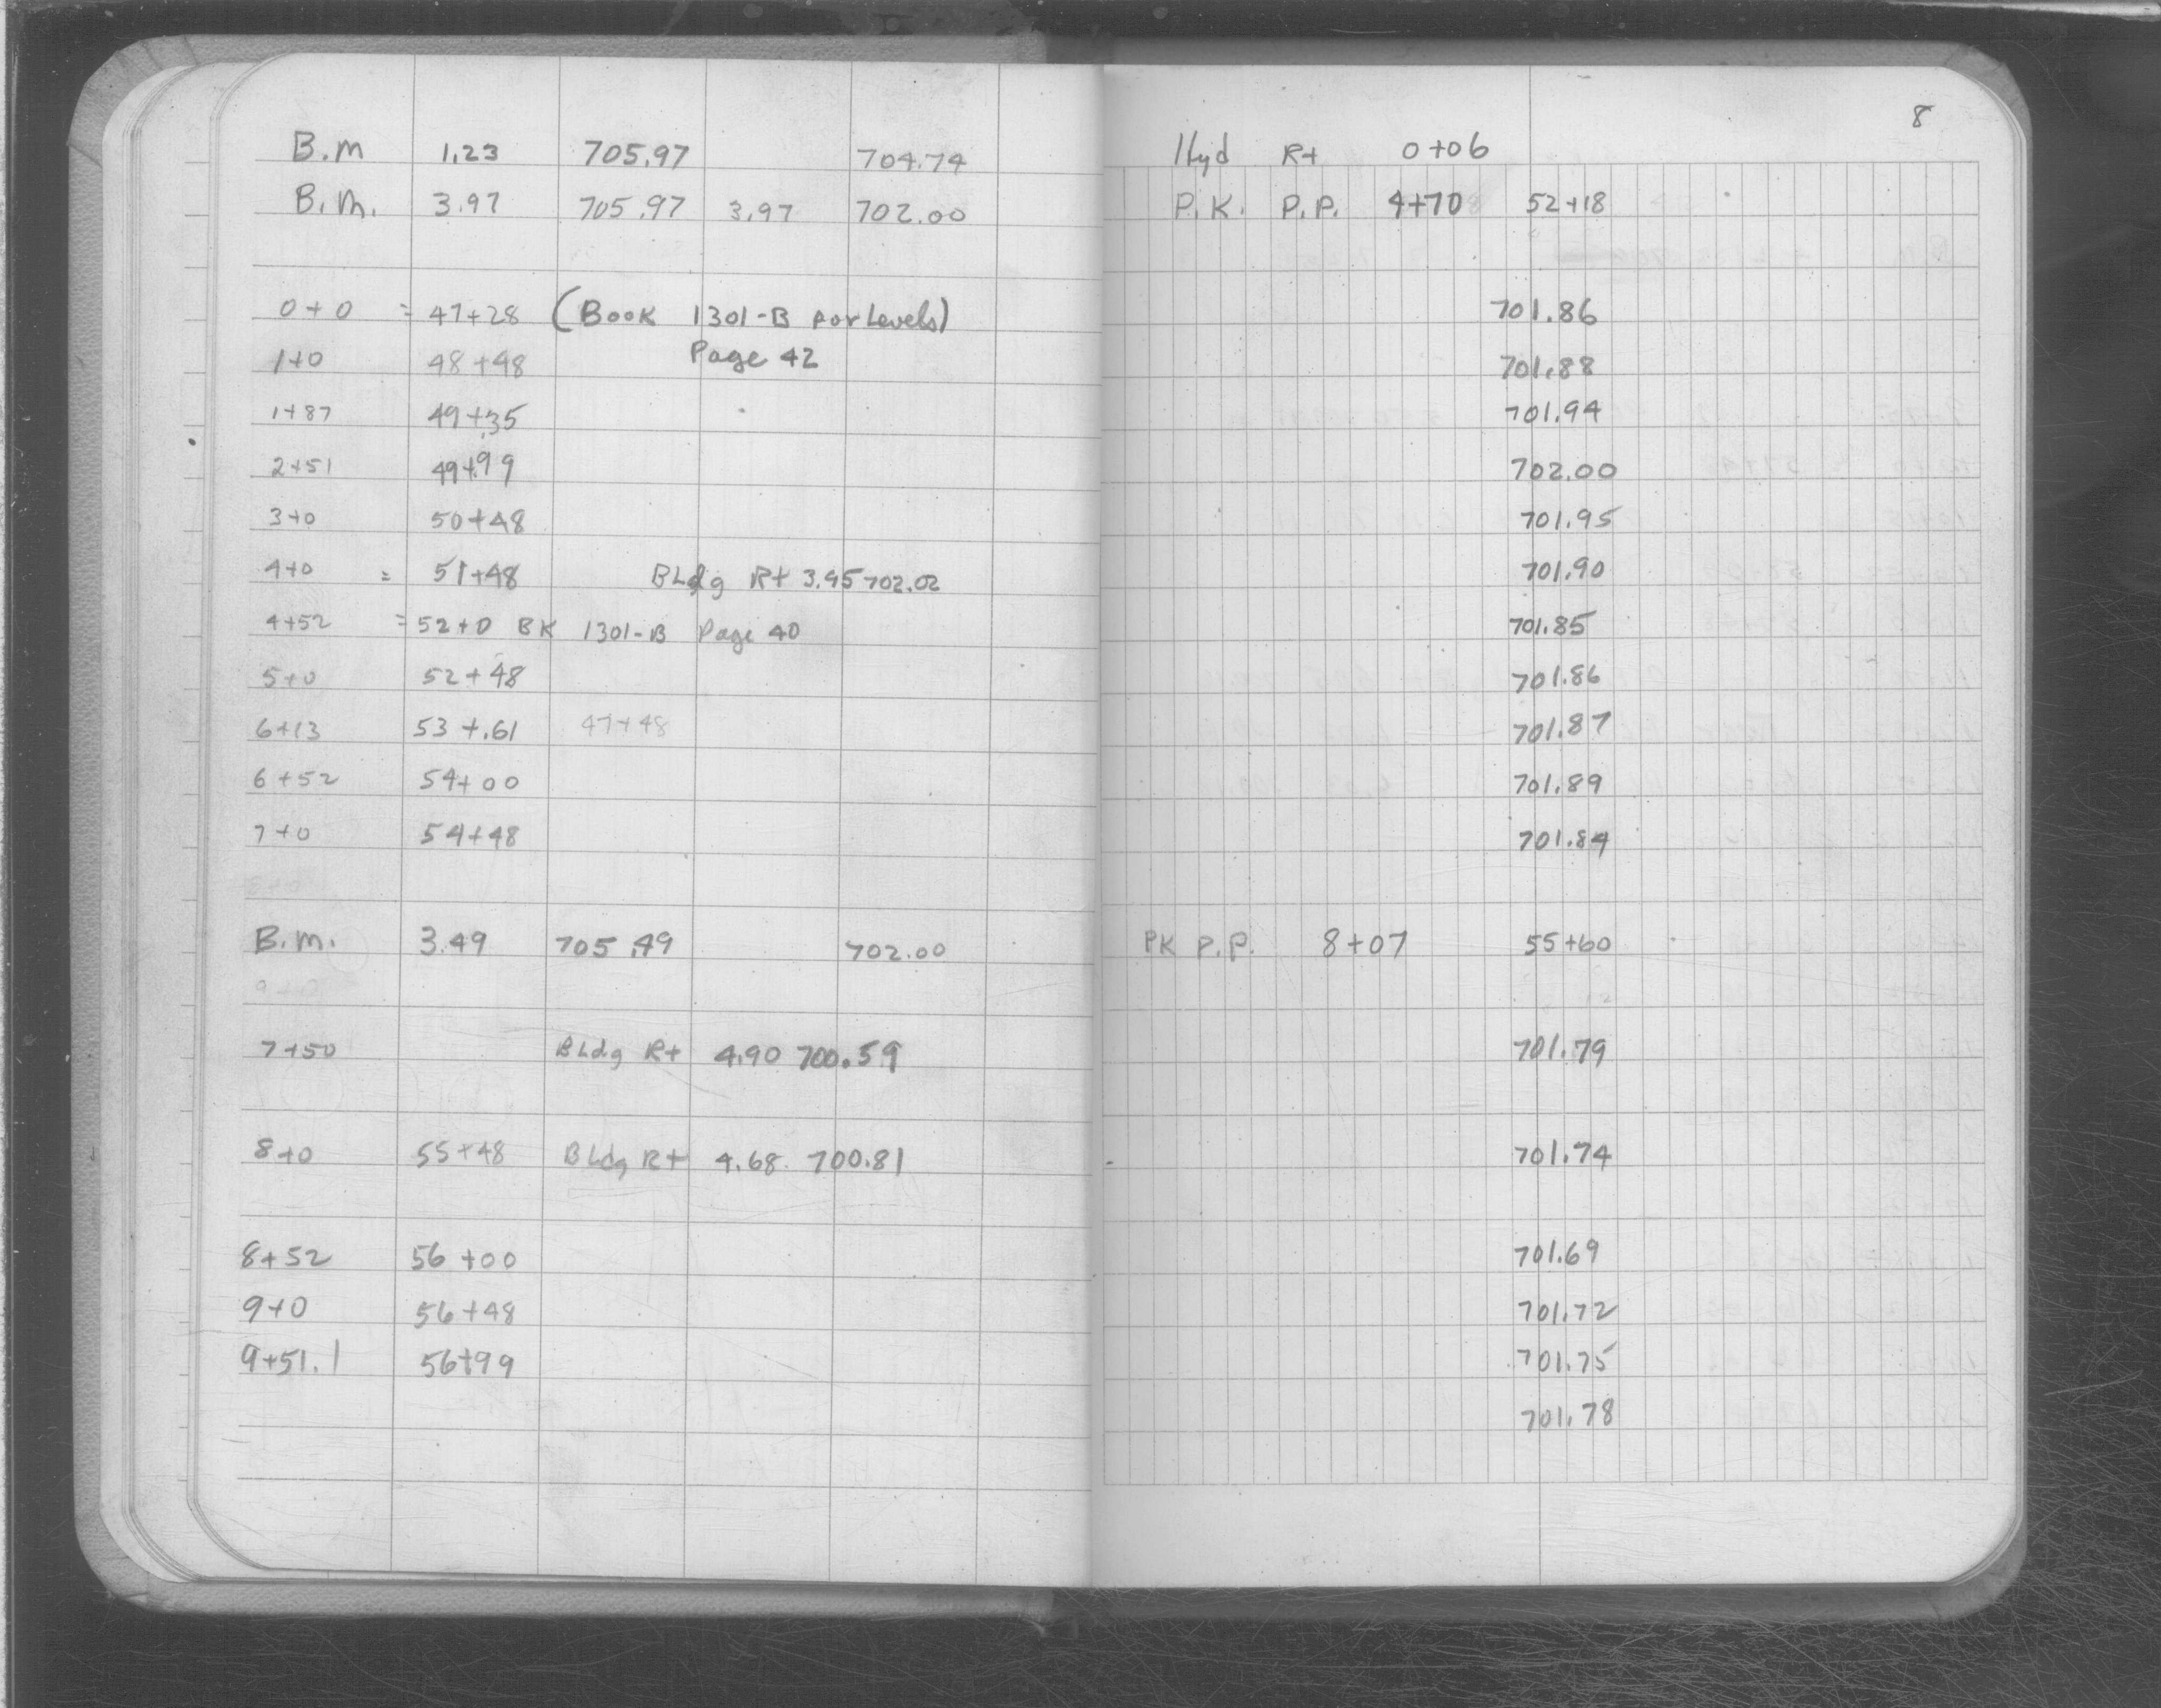 8
B.M 1.23 705.97 704.74 Hyd Rt 0+06
B.M. 3.97 705.97 3.97 702.00 P.K. P.P. 4+70 52+18
0+0 = 47+28 (Book 1301-B for Levels) 701.86
1+0 48+48 Page 42 701.88
1+87 49+35 701.94
2+51 49+99 702.00
3+0 50+48 701.95
4+0 = 51+48 BLdg Rt 3.95 702.02 701.90
4+52 = 52+0 BK 1301-B Page 40 701.85
5+0 52+48 701.86
6+13 53+.61 47+48 701.87
6+52 54+00 701.89
7+0 54+48 701.84
B.M. 3.49 705.49 702.00 PK P.P. 8+07 55+60
7+50 BLdg Rt 4.90 700.59 701.79
8+0 55+48 BLdg Rt 4.68 700.81 701.74
8+52 56+00 701.69
9+0 56+48 701.72
9+51.1 56+99 701.75
701.78